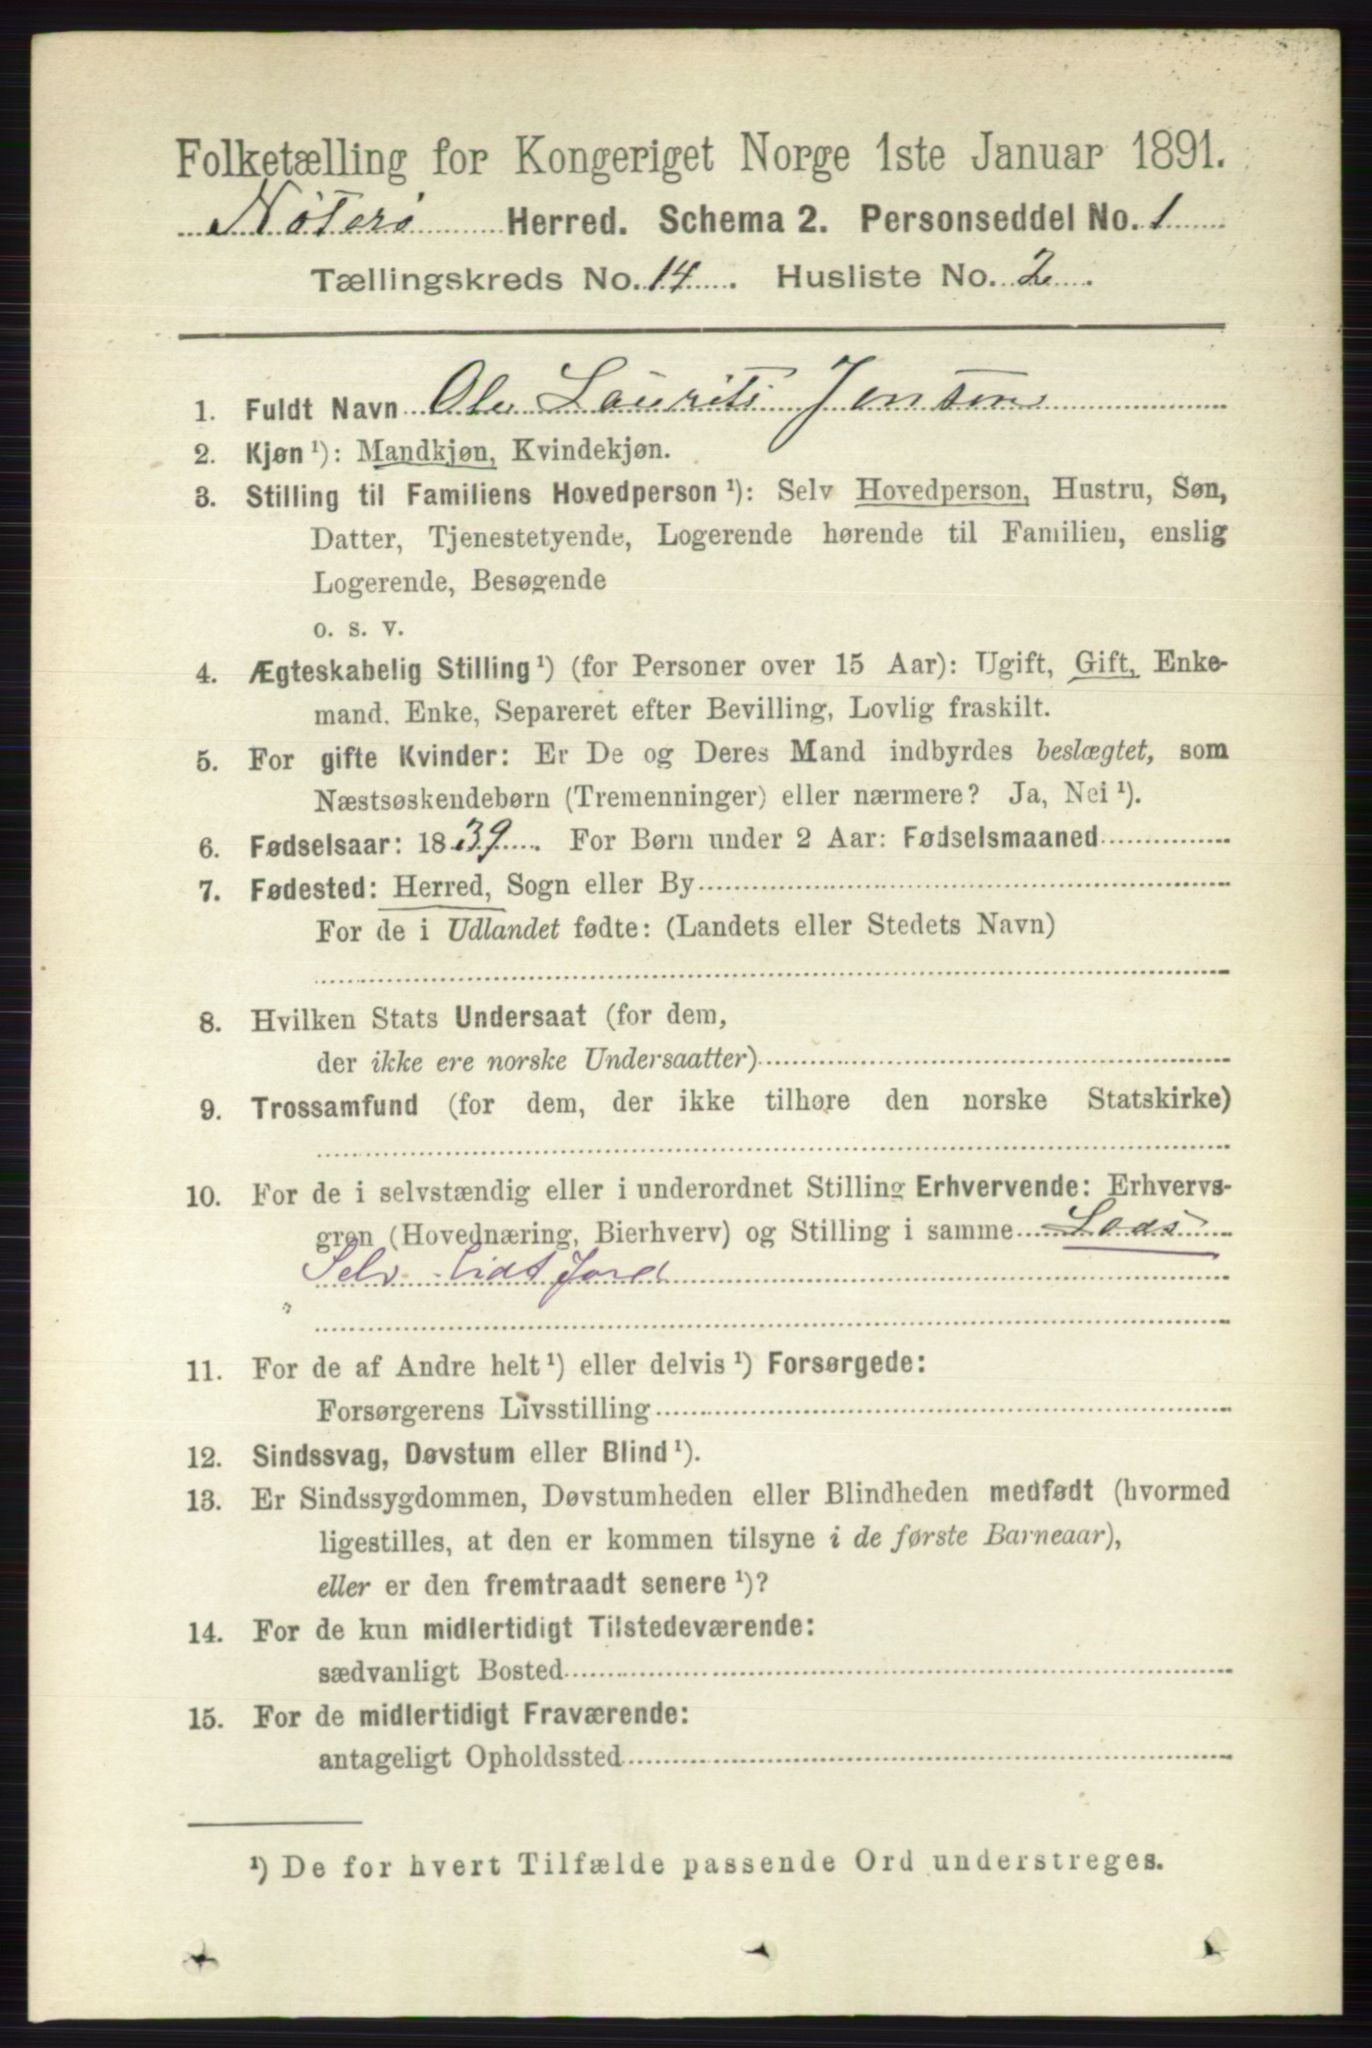 Folketælling for Kongeriget Norge 1ste Januar 1891.
Nøterø Herred. Schema 2. Personseddel No. 1
Tællingskreds No. 14. Husliste No. 2.
1. Fuldt Navn Ole Laurits Jensen
2. Kjøn ¹): Mandkjøn, Kvindekjøn.
3. Stilling til Familiens Hovedperson ¹): Selv Hovedperson, Hustru, Søn,
Datter, Tjenestetyende, Logerende hørende til Familien, enslig
Logerende, Besøgende
o. s. v.
4. Ægteskabelig Stilling ¹) (for Personer over 15 Aar): Ugift, Gift, Enke-
mand, Enke, Separeret efter Bevilling, Lovlig fraskilt.
5. For gifte Kvinder: Er De og Deres Mand indbyrdes beslægtet, som
Næstsøskendebørn (Tremenninger) eller nærmere? Ja, Nei ¹).
6. Fødselsaar: 1839. For Børn under 2 Aar: Fødselsmaaned
7. Fødested: Herred, Sogn eller By
For de i Udlandet fødte: (Landets eller Stedets Navn)
8. Hvilken Stats Undersaat (for dem,
der ikke ere norske Undersaatter)
9. Trossamfund (for dem, der ikke tilhøre den norske Statskirke)
10. For de i selvstændig eller i underordnet Stilling Erhvervende: Erhvervs-
gren (Hovednæring, Bierhverv) og Stilling i samme Lods
Selv Lidt Jord
11. For de af Andre helt ¹) eller delvis ¹) Forsørgede:
Forsørgerens Livsstilling
12. Sindssvag, Døvstum eller Blind ¹).
13. Er Sindssygdommen, Døvstumheden eller Blindheden medfødt (hvormed
ligestilles, at den er kommen tilsyne i de første Barneaar),
eller er den fremtraadt senere ¹)?
14. For de kun midlertidigt Tilstedeværende:
sædvanligt Bosted
15. For de midlertidigt Fraværende:
antageligt Opholdssted
¹) De for hvert Tilfælde passende Ord understreges.